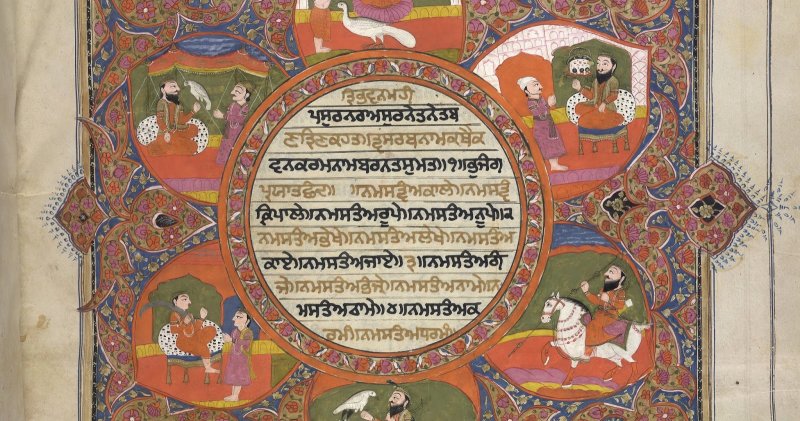 ਤ੍ਰਿਭਵਨਮਹੀ
ਪਸੁਰਨਰਅਸੁਰਨੇਤਨੇਤਬ
ਣਤ੍ਰਿਣਕਹਤ॥ਤ੍ਵਸਰਬਨਾਮਕਥੈਕ
ਵਨਕਰਮਨਾਮਬਰਨਤਸੁਮਤ॥੧॥ਭੁਜੰਗ
ਪ੍ਰਯਾਤਛੰਦ॥ ॥ਨਮਸਤ੍ਵੰਅਕਾਲੇ॥ਨਮਸਤ੍ਵੰ
ਕ੍ਰਿਪਾਲੇ॥ਨਮਸਤੰਅਰੂਪੇ॥ਨਮਸਤੰਅਨੂਪੇ॥੨
ਨਮਸਤੰਅਭੇਖੇ॥ਨਮਸਤੰਅਲੇਖੇ॥ਨਮਸਤੰਅ
ਕਾਏ॥ਨਮਸਤੰਅਜਾਏ॥੩॥ਨਮਸਤੰਅਗੰ
ਜੇ॥ਨਮਸਤੰਅਭੰਜੇ॥ਨਮਸਤੰਅਨਾਮੇ॥ਨ
ਮਸਤੰਅਠਾਮੇ॥੪॥ਨਮਸਤੰਅਕ
ਰਮੰ॥ਨਮਸਤੰਅਧਰਮੰ